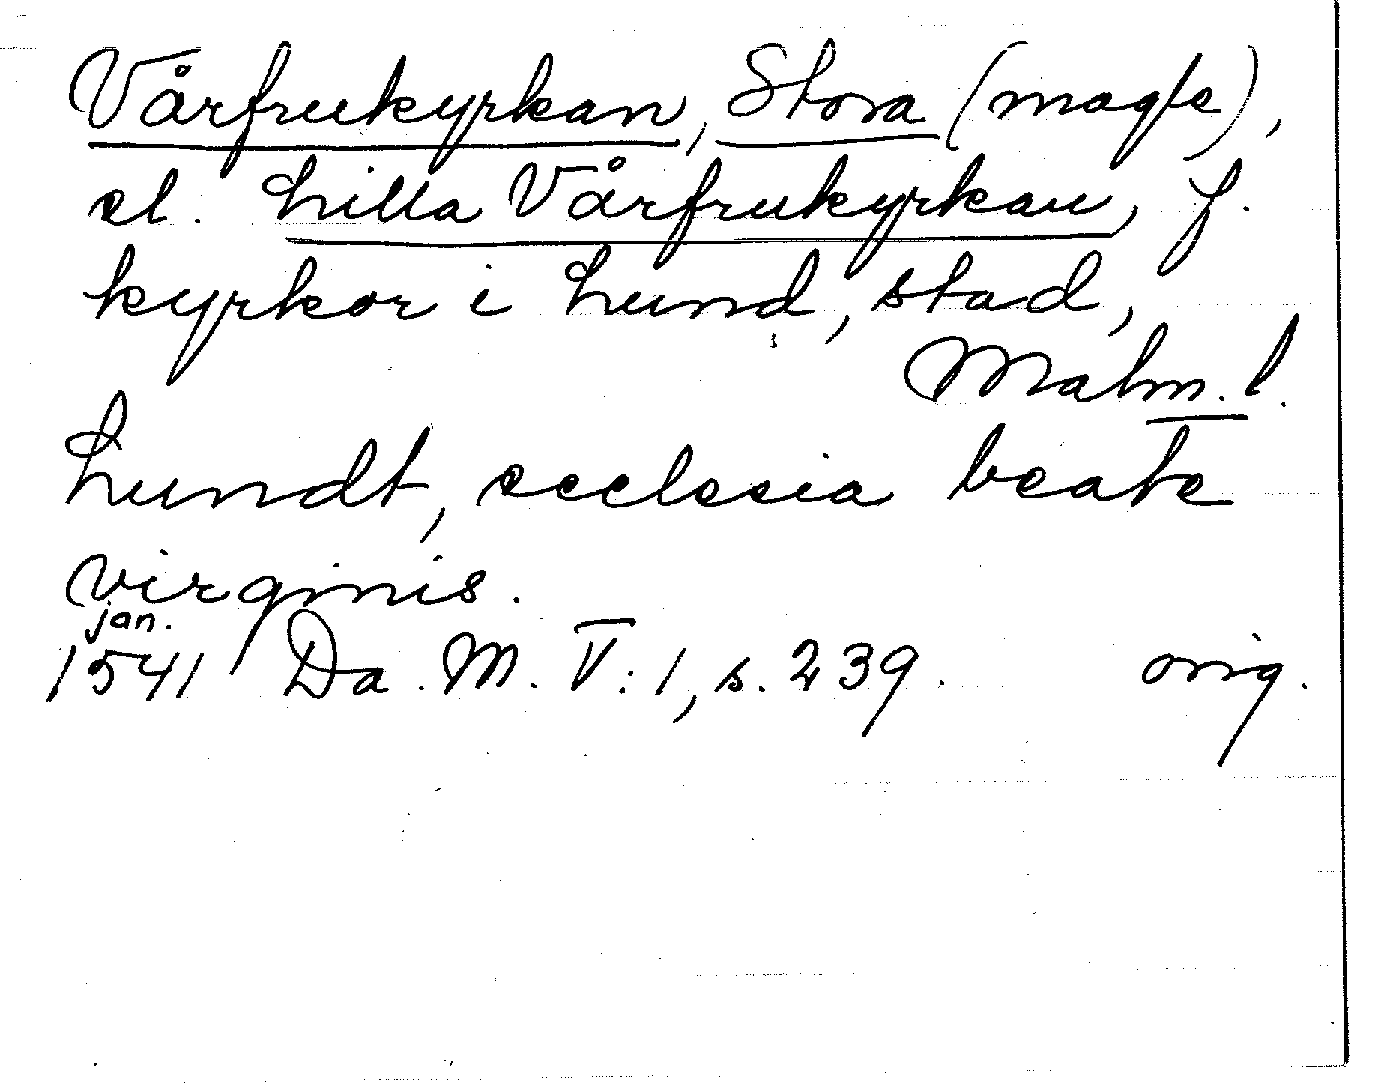 Vårfrukyrkan, Stora (magle),
el. Lilla Vårfrukyrkan, f.
kyrkor i Lund, stad,
Malm. l.
Lundt, ecclesia beate
virginis.
jan.
1541 Da. M. V:1, s. 239. orig.